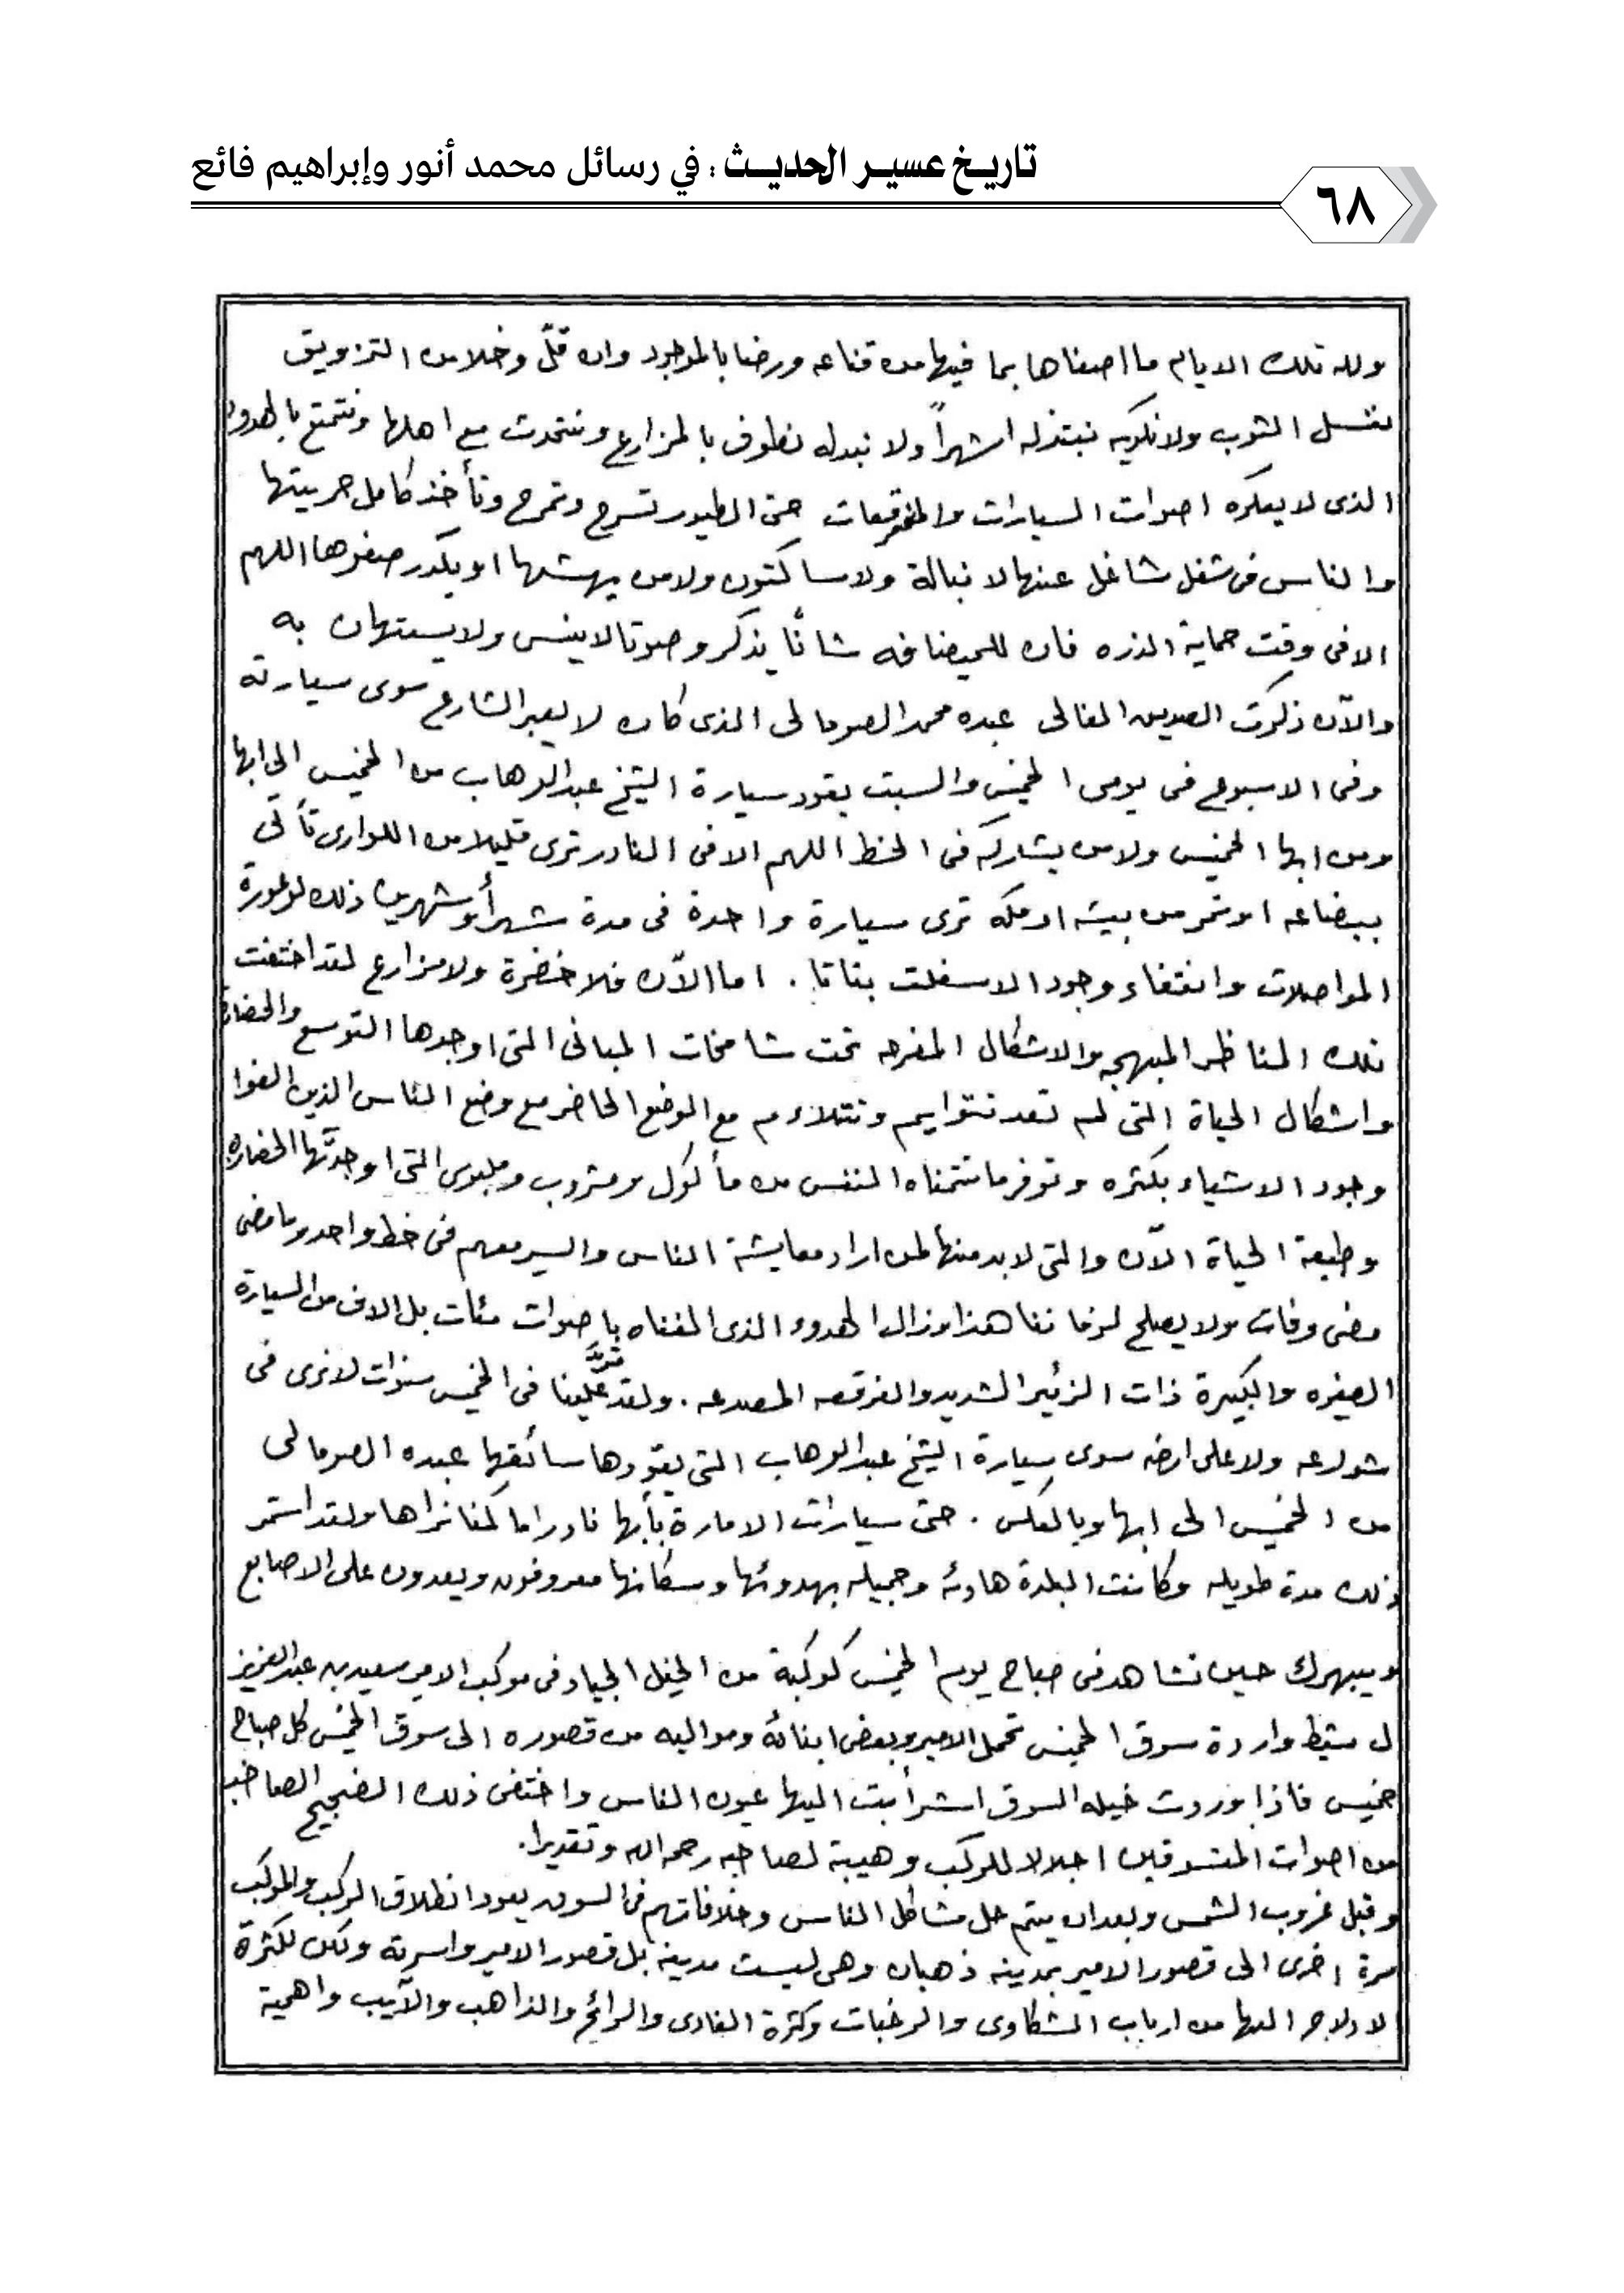 تاريخ عسير الحديث : في رسائل محمد أنور وإبراهيم فائع
٦٨
ولله تلك الايام ما اصفاها بما فيها من قناعه ورضا بالموجود وان قلّ وخلا من التزويق
نغسل الثوب ولا نكويه نبتذله اشهراً ولا نبدله نطوف بالمزارع ونتحدث مع اهلها ونتمتع بالهدوء
الذى لا يعكره اصوات السيارات والمفرقعات حتى الطيور تسرح وتمرح وتأخذ كامل حريتها
والناس فى شغل شاغل عنها لا نبالة ولا ساكتون ولا من يهشها او يكدر صفوها اللهم
الا فى وقت حماية الذره فان للميضافه شانًا يذكر وصوتا لا ينس ولا يستهان به
والآن ذكرت الصديق الغالى عبده محمد الصومالى الذى كان لا يعبر الشارع سوى سيارته
وفى الاسبوع فى يومى الخميس والسبت يقود سيارة الشيخ عبدالوهاب من الخميس الى ابها
ومن ابها الخميس ولا من يشاركه فى الخط اللهم الا فى النادر ترى قليلا من اللوارى تأتى
ببضاعه او تمر من بيشه او مكه ترى سيارة واحدة فى مدة شهر أو شهرين ذلك لوعورة
المواصلات وانتفاء وجود الاسفلت بتاتا . اما الآن فلا خضرة ولا مزارع لقد اختفت
تلك المناظر المبهجه والاشكال المفرحه تحت شامخات المبانى التى اوجدها التوسع والحضارة
واشكال الحياة التى لم تعد تتوايم وتتلاءم مع الوضع الحاضر مع وضع الناس الذين الفوا
وجود الاشياء بكثره وتوفر ما تتمناه النفس من مأكول ومشروب وملبوس التى اوجدتها الحضاره
وطبعة الحياة الآن والتى لابد منها لمن اراد معايشة الناس والسير معهم فى خط واحد وما مضى
مضى وفات ولا يصلح لزماننا هذا وزال الهدوء الذى الفناه باصوات مئات بل الاف من السيارة
الصغيره والكبيرة ذات الزئير الشديد والفرقعه المصدعه . ولقد مرّت علينا فى الخميس سنوات لا نرى فى
شوارعه ولا على ارضه سوى سيارة الشيخ عبدالوهاب التى يقودها سائقها عبده الصومالى
من الخميس الى ابها وبالعكس . حتى سيارات الامارة بأبها نادراما كنا نراها ولقد استمر
ذلك مدة طويله وكانت البلدة هادئه وجميله بهدوئها وسكانها معروفون ويعدون على الاصابع
ويبهرك حين تشاهد فى صباح يوم الخميس كوكبة من الخيل الجياد فى موكب الامير سعيد بن عبدالعزيز
ل مشيط واردة سوق الخميس تحمل الامير وبعض ابنائه ومواليه من قصوره الى سوق الخميس كل صباح
خميس فاذا وردت خيله السوق اشرأبت اليها عيون الناس واختفى ذلك الضجيج الصاخب
من اصوات المتسوقين اجلالا للركب وهيبة لصاحبه رحمه الله وتقديرا.
وقبل غروب الشمس وبعد ان يتم حل مشاكل الناس وخلافاتهم فى السوق يعود انطلاق الركب والموكب
مرة اخرى الى قصور الامير بمدينه ذهبان وهى ليست مدينه بل قصور الامير واسرته ولكن لكثرة
لادلاج اليها من ارباب الشكاوى والرغبات وكثرة الغادى والرائح والذاهب والآيب واهمية